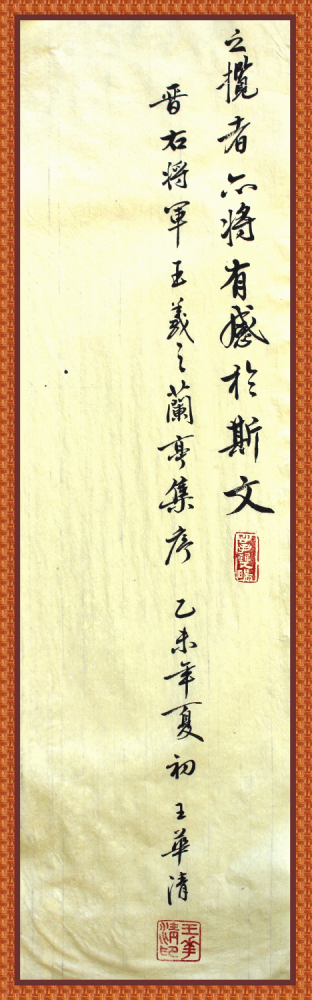 之攬者亦将有感於斯文
晋右将軍王羲之蘭亭集序 乙未年夏初 王華清
王華清印